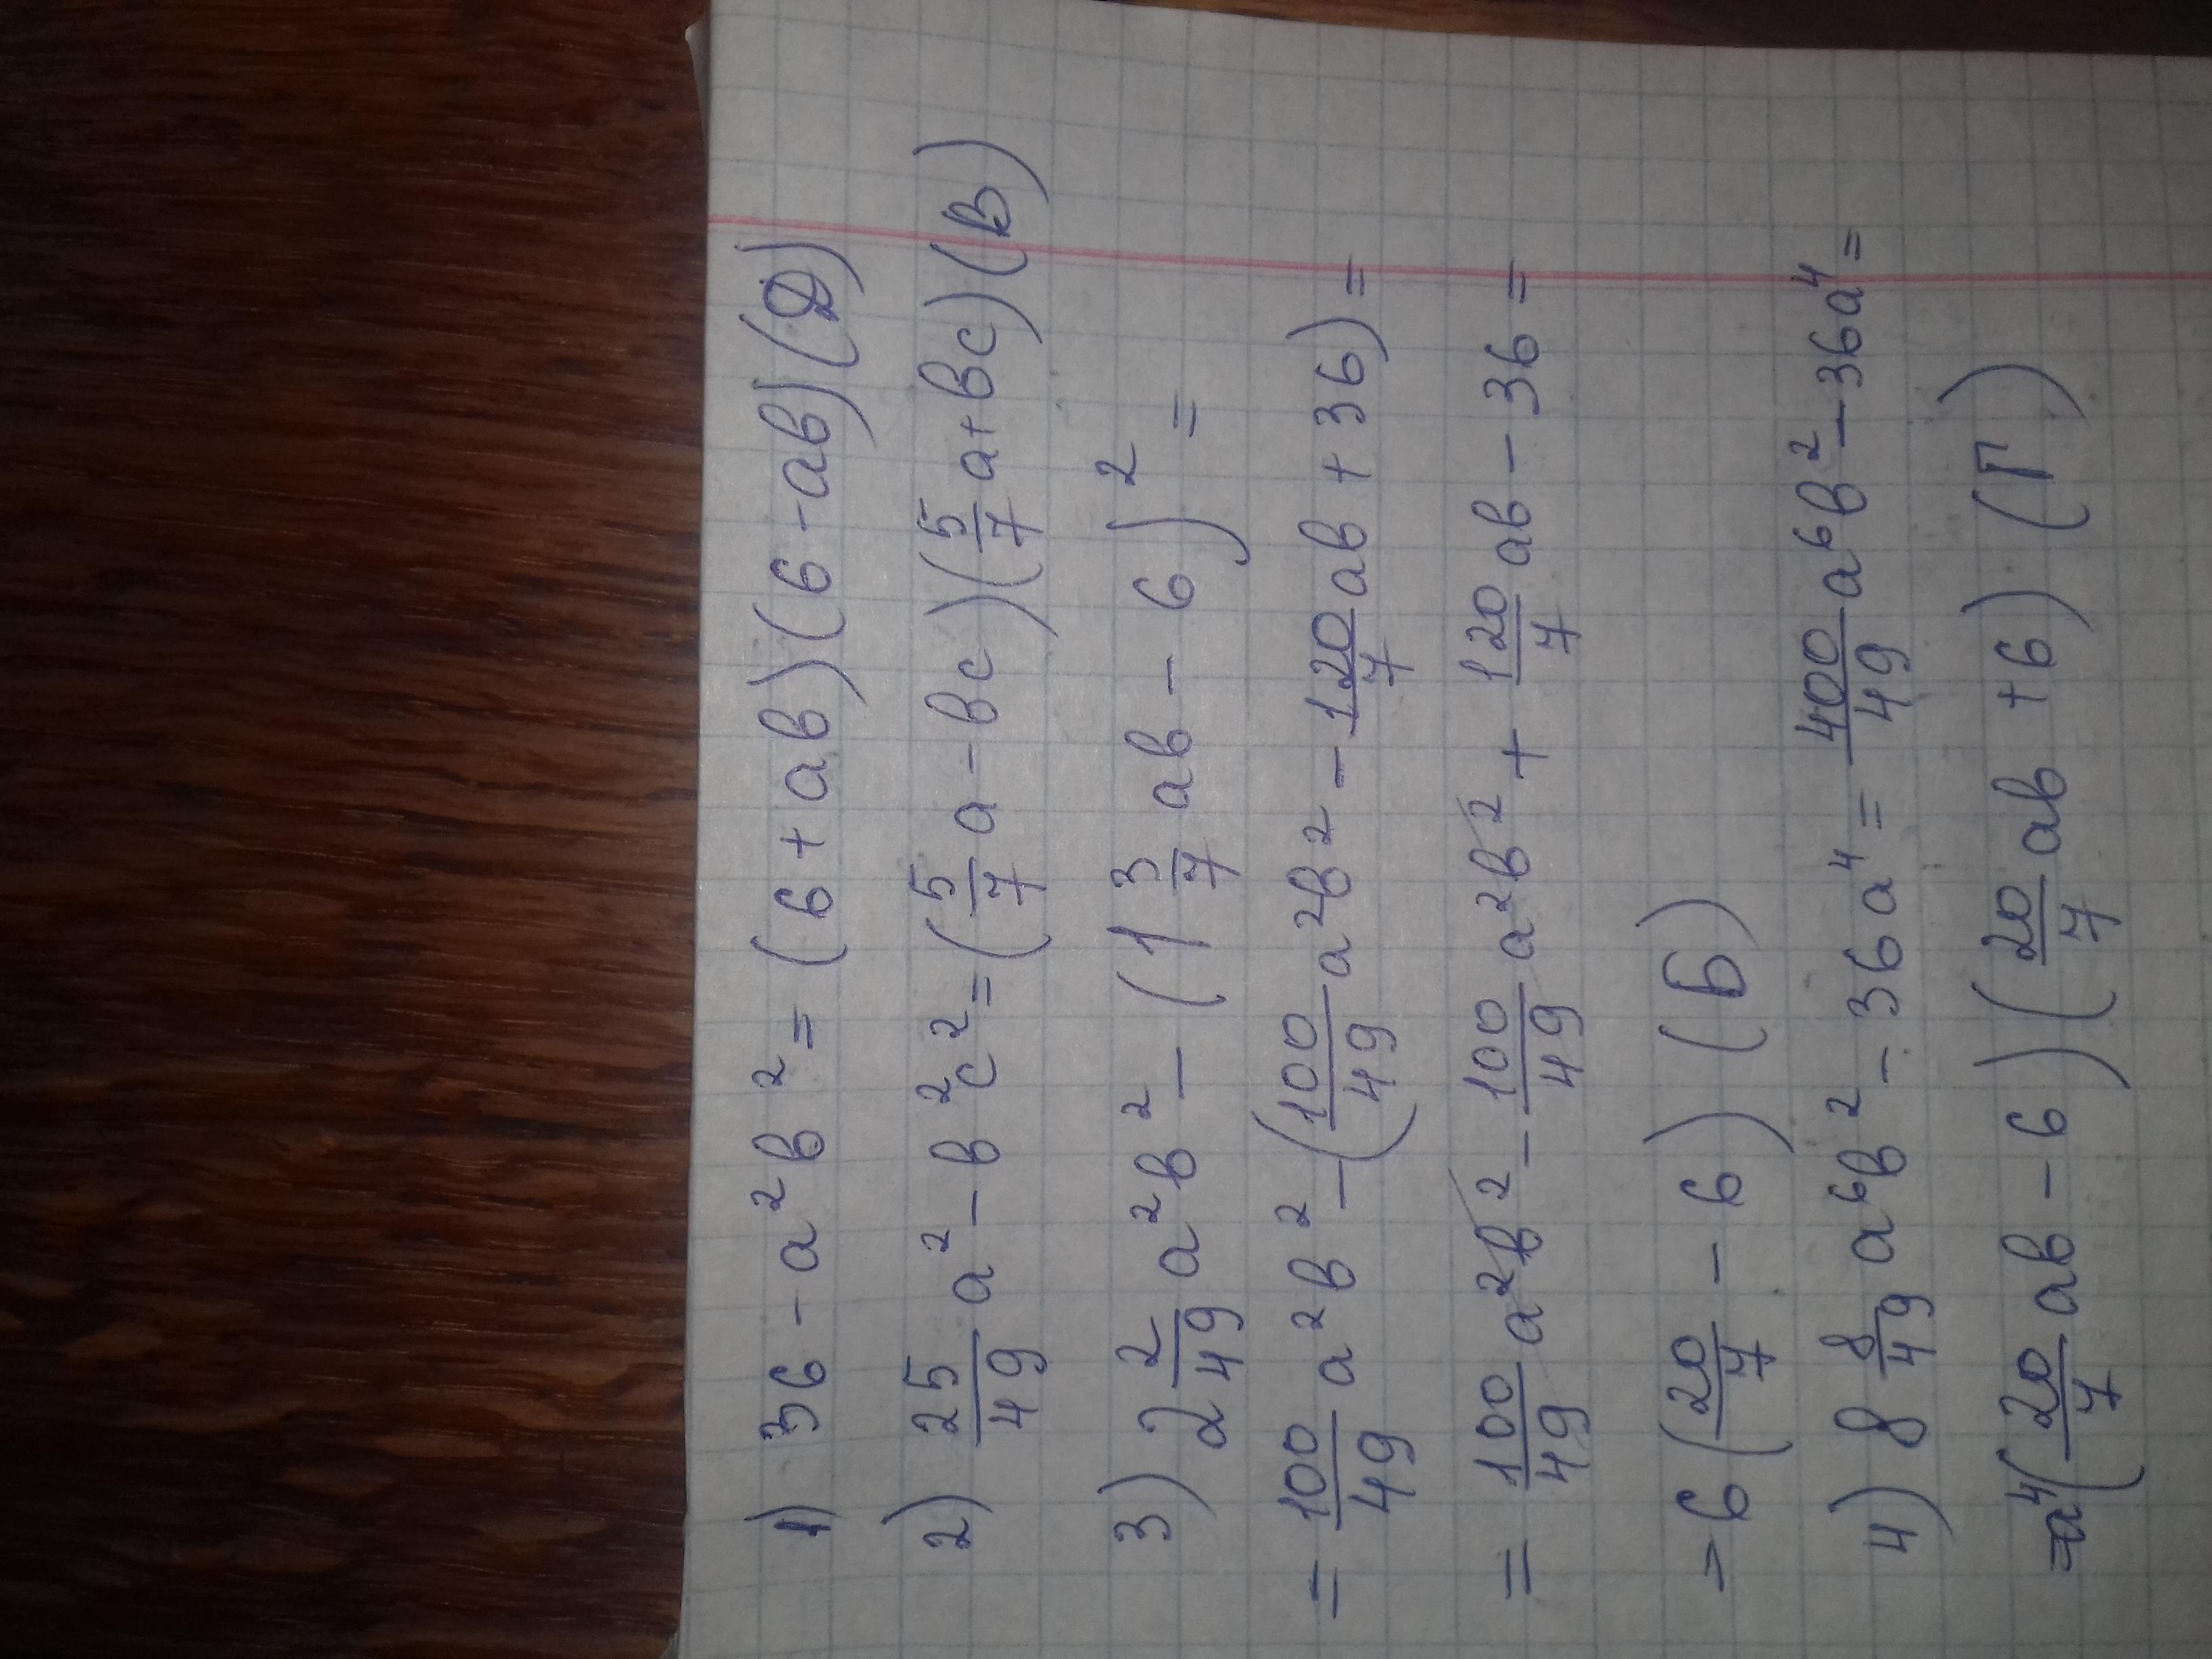 1) 36 - a²b² = (6 + ab)(6 - ab) (Д)
2) 25/49 a² - b²c² = (5/7 a - bc)(5/7 a + bc) (В)
3) 2 2/49 a²b² - (1 3/7 ab - 6)² =
= 100/49 a²b² - (100/49 a²b² - 120/7 ab + 36) =
= 100/49 a²b² - 100/49 a²b² + 120/7 ab - 36 =
= 6(20/7 - 6) (Б)
4) 8 8/49 a⁶b² - 36a⁴ = 400/49 a⁶b² - 36a⁴ =
= a⁴(20/7 ab - 6)(20/7 ab + 6) (Г)